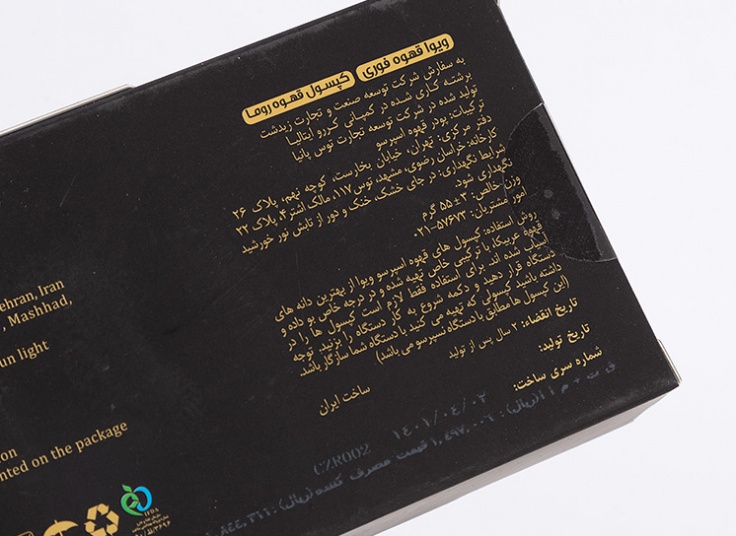 ویوا قهوه فوری کپسول قهوه روما
به سفارش شرکت توسعه صنعت و تجارت زبدشت
برشته کاری شده در کمپانی کررو ایتالیا
تولید شده در شرکت توسعه تجارت توس پانیا
ترکیبات: پودر قهوه اسپرسو
دفتر مرکزی: تهران، خیابان بخارست، کوچه نهم، پلاک ۲۶
کارخانه: خراسان رضوی، مشهد، توس ۱۱۷، مالک اشتر ۴، پلاک ۲۲
شرایط نگهداری: در جای خشک، خنک و دور از تابش نور خورشید
نگهداری شود.
وزن خالص: ۳±۵۵ گرم
امور مشتریان: ۵۷۶۷۲-۰۲۱
روش استفاده: کپسول های قهوه اسپرسو ویوا از بهترین دانه های
قهوه عربیکا، با ترکیبی خاص تهیه شده و در درجه خاص بو داده و
آسیاب شده اند. برای استفاده فقط لازم است کپسول ها را در
دستگاه قرار دهید و دکمه شروع به کار دستگاه را بزنید. توجه
داشته باشید کپسولی که تهیه می کنید با دستگاه شما سازگار باشد.
(این کپسول ها مطابق با دستگاه نسپرسو می باشد)
تاریخ انقضاء: ۲ سال پس از تولید
تاریخ تولید:
شماره سری ساخت:
ساخت ایران
۱۴۰۱/۰۴/۰۲
CZR002
قیمت مصرف کننده (ریال):
ehran, Iran
, Mashhad,
un light
on
nted on the package
IFDA